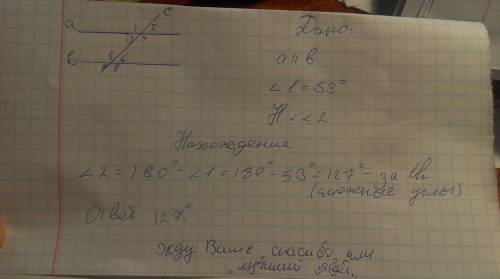 c
a 1 2
3 4
b 5 6
7 8
Дано:
a || b
∠1 = 53°
Н: ∠2
Нахождение
∠2 = 180° - ∠1 = 180° - 53° = 127° - за
(сложные углы)
Ответ 127°.
Жду Ваше спасибо или
"лучший